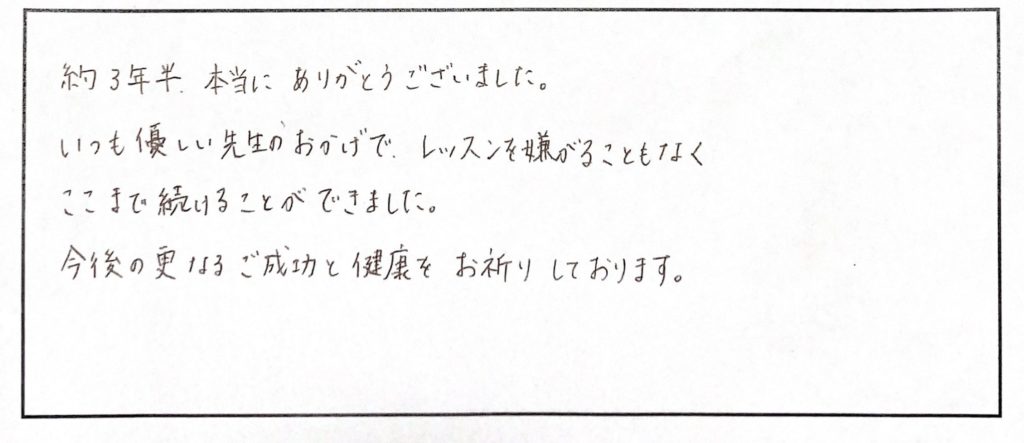 約3年半、本当に ありがとうございました。
いつも優しい先生のおかげで、レッスンを嫌がることもなく
ここまで続けることができました。
今後の更なるご成功と健康を お祈りしております。